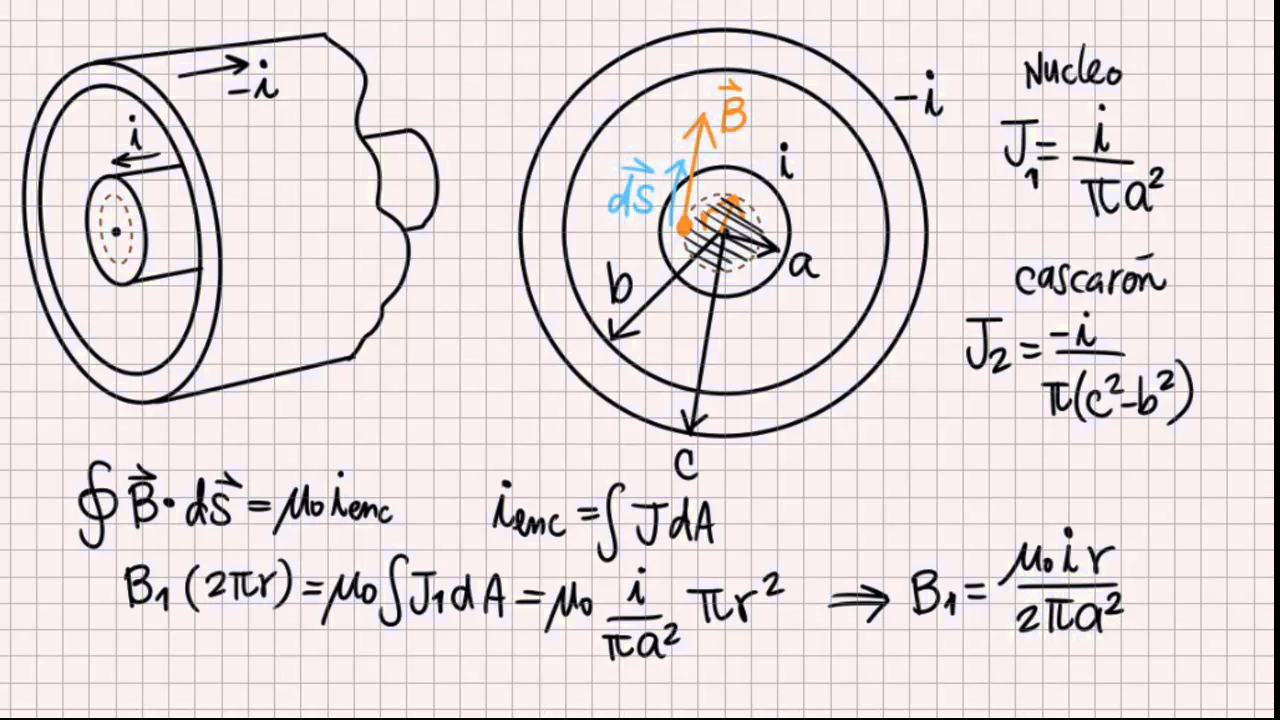 -i
i
B⃗
ds⃗
i
-i
a
b
c
Nucleo
J₁ = i / πa²
cascarōn
J₂ = -i / π(c²-b²)
∮ B⃗ · ds⃗ = μ₀ i enc
i enc = ∫ J dA
B₁ (2πr) = μ₀ ∫ J₁ dA = μ₀ i / πa² πr² ⟹ B₁ = μ₀ i r / 2πa²